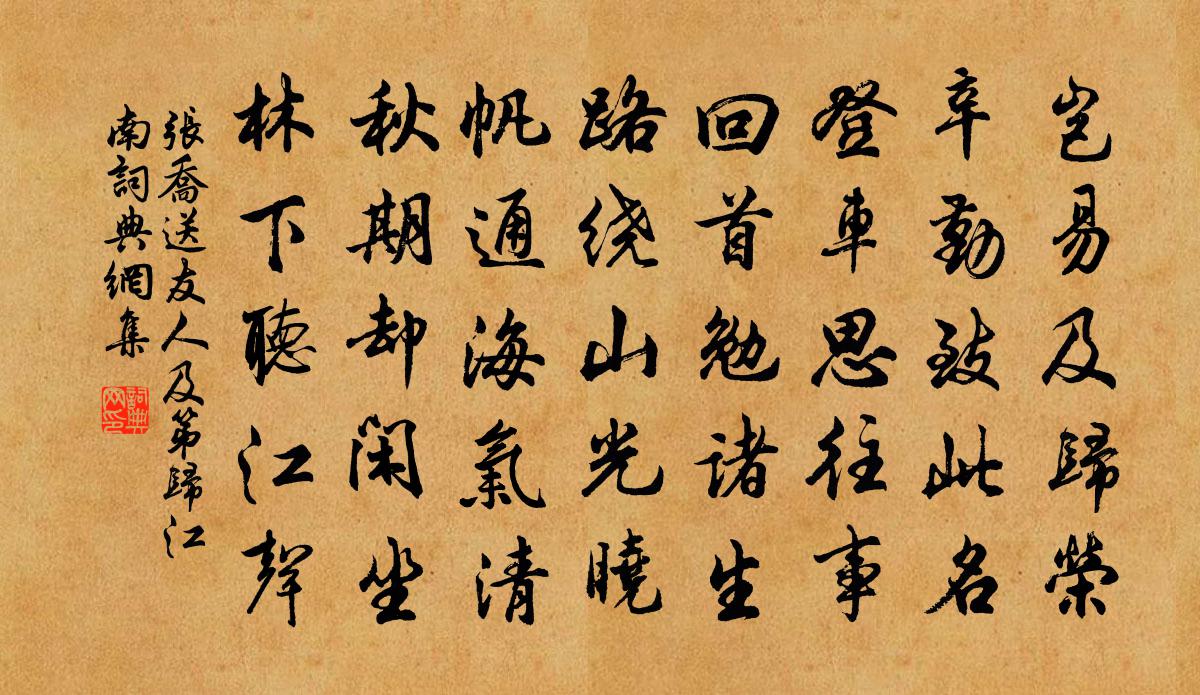 豈易及歸榮
辛勤致此名
登車思往事
回首勉诸生
路绕山光曉
帆通海氣清
秋期却閑坐
林下聽江聲
張喬送友人及第歸江
南詞典網集
詞典
网印